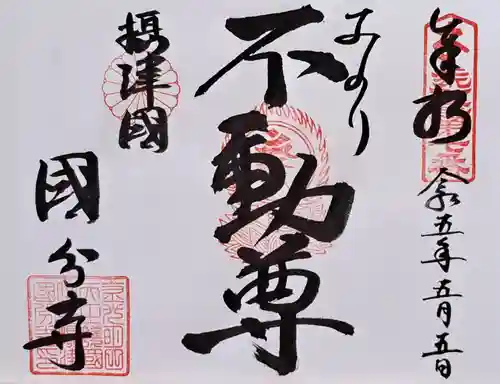 奉拝
令和五年五月五日
みのり
不動尊
摂津國
國分寺